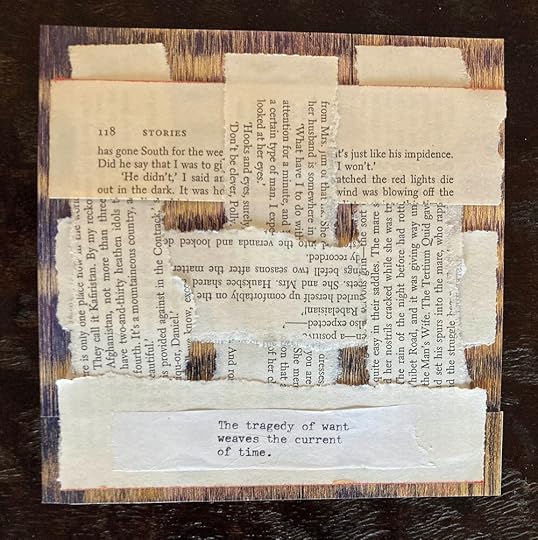 118 STORIES
has gone South for the wee
Did he say that I was to gi
'He didn't,' I said ar
out in the dark. It was he
t's just like his impidence.
I won't.'
atched the red lights die
wind was blowing off the
from Mrs. Jim
her husband is somewhere in
'What have I to do with
attention for a minute, and
a certain type of man. I expe
looked at her eyes.'
'Hooks and eyes, surely
'Don't be clever, Polly
en—a—positive
also expected—
Rabelaisian!
herself up comfortably on the
sets. She and Mrs. Hauksbee shared
ngs befell two seasons after the matter
dy recorded.
into the veranda and looked
re is only one place now in the world
They call it Kafiristan. By my recko
Afghanistan, not more than three
have two-and-thirty heathen idols t
fourth. It's a mountaineous country, a
eautiful.'
is provided against in the Contrack,'
iquor, Daniel.'
we know, ex
Any
of her
on that
She mer
you are
dresses,
the sort
quite easy in their saddles. The mare
her nostrils cracked while she was tr
The rain of the night before had rott
hibet Road, and it was giving way un
the Man's Wife. The Tertium Quid gave
d set his spurs into the mare, who rapp
and the struggle
The tragedy of want
weaves the current
of time.